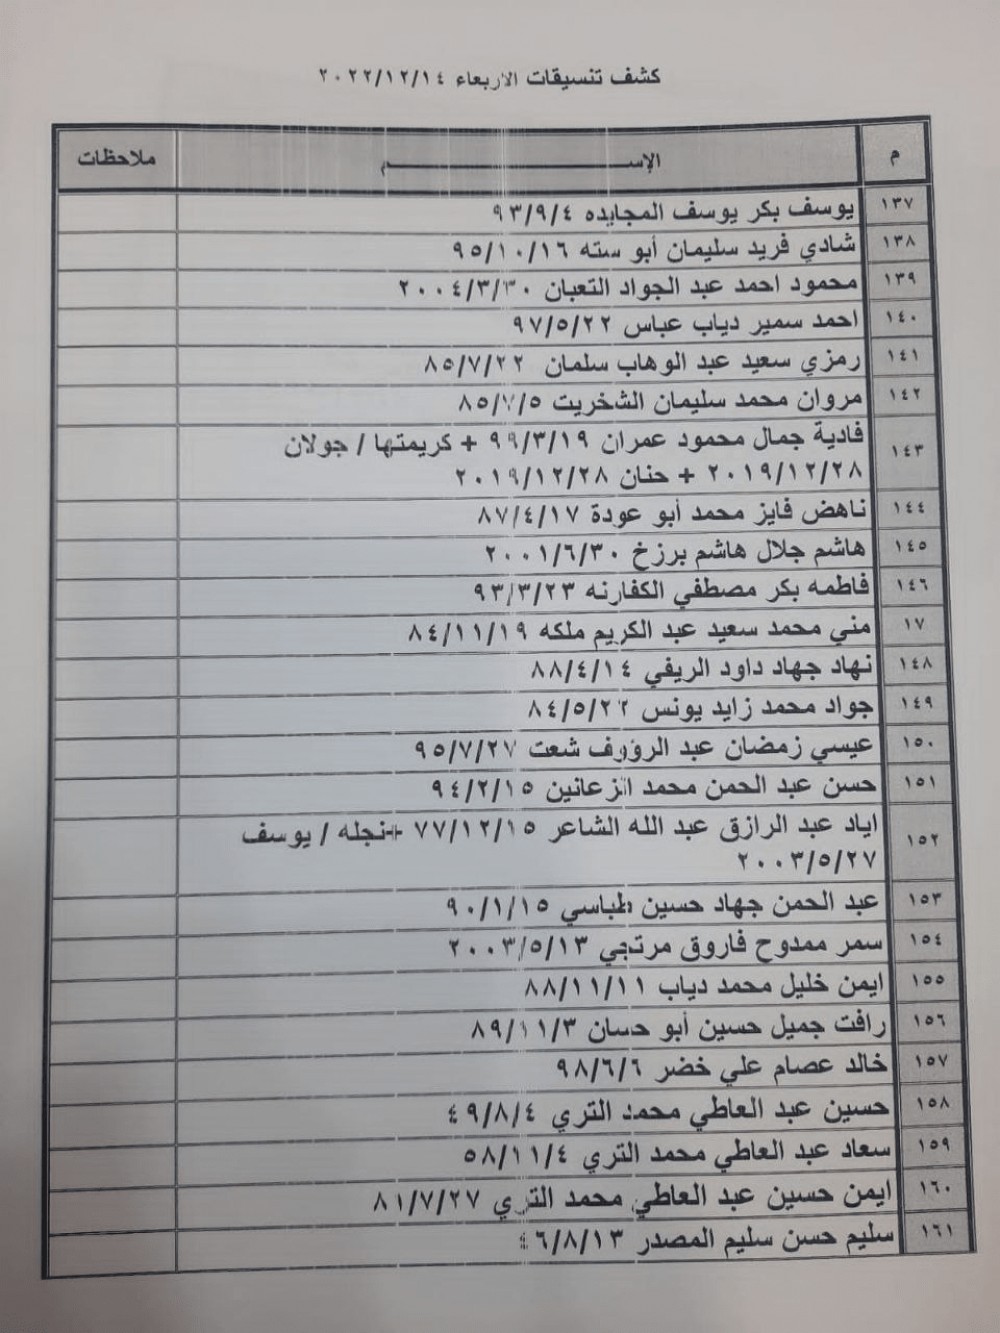 كشف تنسيقات الاربعاء ٢٠٢٢/١٢/١٤
م الإســــــــم ملاحظات
١٣٧ يوسف بكر يوسف المجايده ٩٣/٩/٤
١٣٨ شادي فريد سليمان أبو سته ٩٥/١٠/١٦
١٣٩ محمود احمد عبد الجواد التعبان ٢٠٠٤/٣/٣٠
١٤٠ احمد سمير دياب عباس ٩٧/٥/٢٢
١٤١ رمزي سعيد عبد الوهاب سلمان ٨٥/٧/٢٢
١٤٢ مروان محمد سليمان الشخريت ٨٥/٧/٥
١٤٣ فادية جمال محمود عمران ٩٩/٣/١٩ + كريمتها / جولان
٢٠١٩/١٢/٢٨ + حنان ٢٠١٩/١٢/٢٨
١٤٤ ناهض فايز محمد أبو عودة ٨٧/٤/١٧
١٤٥ هاشم جلال هاشم برزخ ٢٠٠١/٦/٣٠
١٤٦ فاطمه بكر مصطفي الكفارنه ٩٣/٣/٢٣
١٧ مني محمد سعيد عبد الكريم ملكه ٨٤/١١/١٩
١٤٨ نهاد جهاد داود الريفي ٨٨/٤/١٤
١٤٩ جواد محمد زايد يونس ٨٤/٥/٢٢
١٥٠ عيسي زمضان عبد الرؤوف شعت ٩٥/٧/٢٧
١٥١ حسن عبد الحمن محمد الزعانين ٩٤/٢/١٥
١٥٢ اياد عبد الرازق عبد الله الشاعر ٧٧/١٢/١٥ +نجله / يوسف
٢٠٠٣/٥/٢٧
١٥٣ عبد الحمن جهاد حسين طباسي ٩٠/١/١٥
١٥٤ سمر ممدوح فاروق مرتجي ٢٠٠٣/٥/١٣
١٥٥ ايمن خليل محمد دياب ٨٨/١١/١١
١٥٦ رافت جميل حسين أبو حسان ٨٩/١١/٣
١٥٧ خالد عصام علي خضر ٩٨/٦/٦
١٥٨ حسين عبد العاطي محمد التري ٤٩/٨/٤
١٥٩ سعاد عبد العاطي محمد التري ٥٨/١١/٤
١٦٠ ايمن حسين عبد العاطي محمد التري ٨١/٧/٢٧
١٦١ سليم حسن سليم المصدر ٤٦/٨/١٣